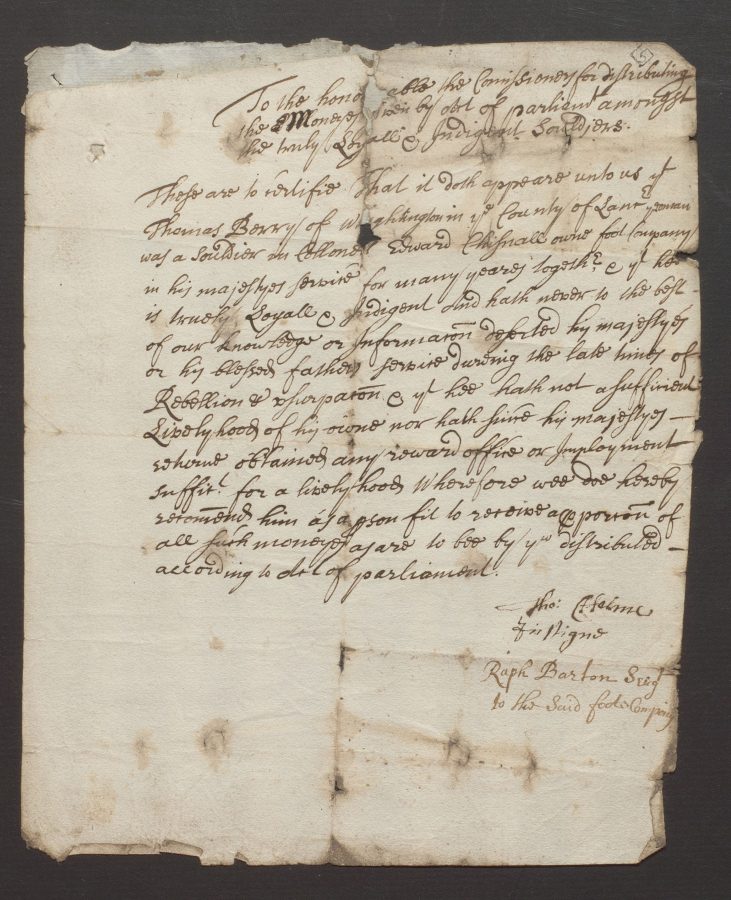 5
To the hono able the Comissioners for distributing
the Moneyes given by Act of parliamt amongst
the truly Loyall & Indigent Souldiers.
These are to Certifie That it doth appeare unto us yt
Thomas Berry of W ghtington in ye County of Lanc yeoman
was a Souldier in Collonel Edward Chisnall owne foot Company
in his majestyes service for many yeares togethr & yt hee
is truely Loyall & Indigent And hath never to the best
of our knowledge or Informacon deserted his majestyes
or his blessed fathers service dureing the late times of
Rebellion & vsurpacon & yt hee hath not a sufficient
Livelyhood of his owne nor hath since his majestyes
returne obtained any reward office or Imployment
suffict for a livelyhood Wherefore wee doe hereby
recomend him as a pson fit to receive a pporcon of
all such moneyes as are to bee by yw distributed
according to Act of parliament.
Tho:
Insigne
Raph Barton Serg
to the Said foote Company